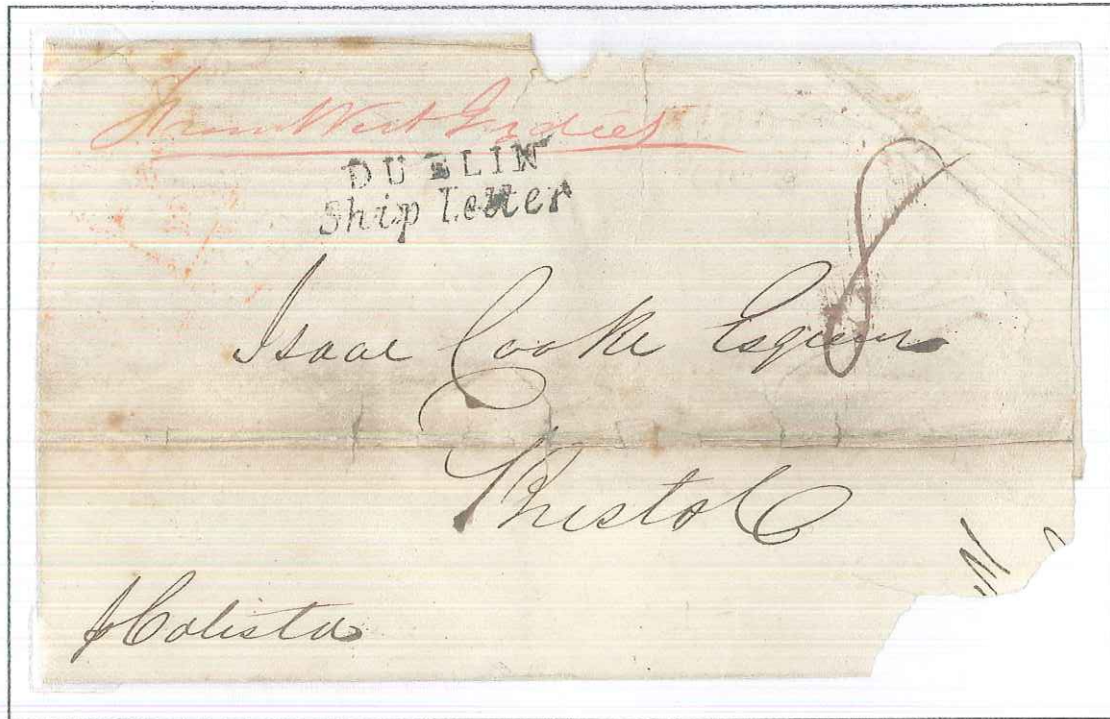 From West Indies
DUBLIN
Ship Letter
8
Isaac Cooke Esquire
Bristol
p Calista